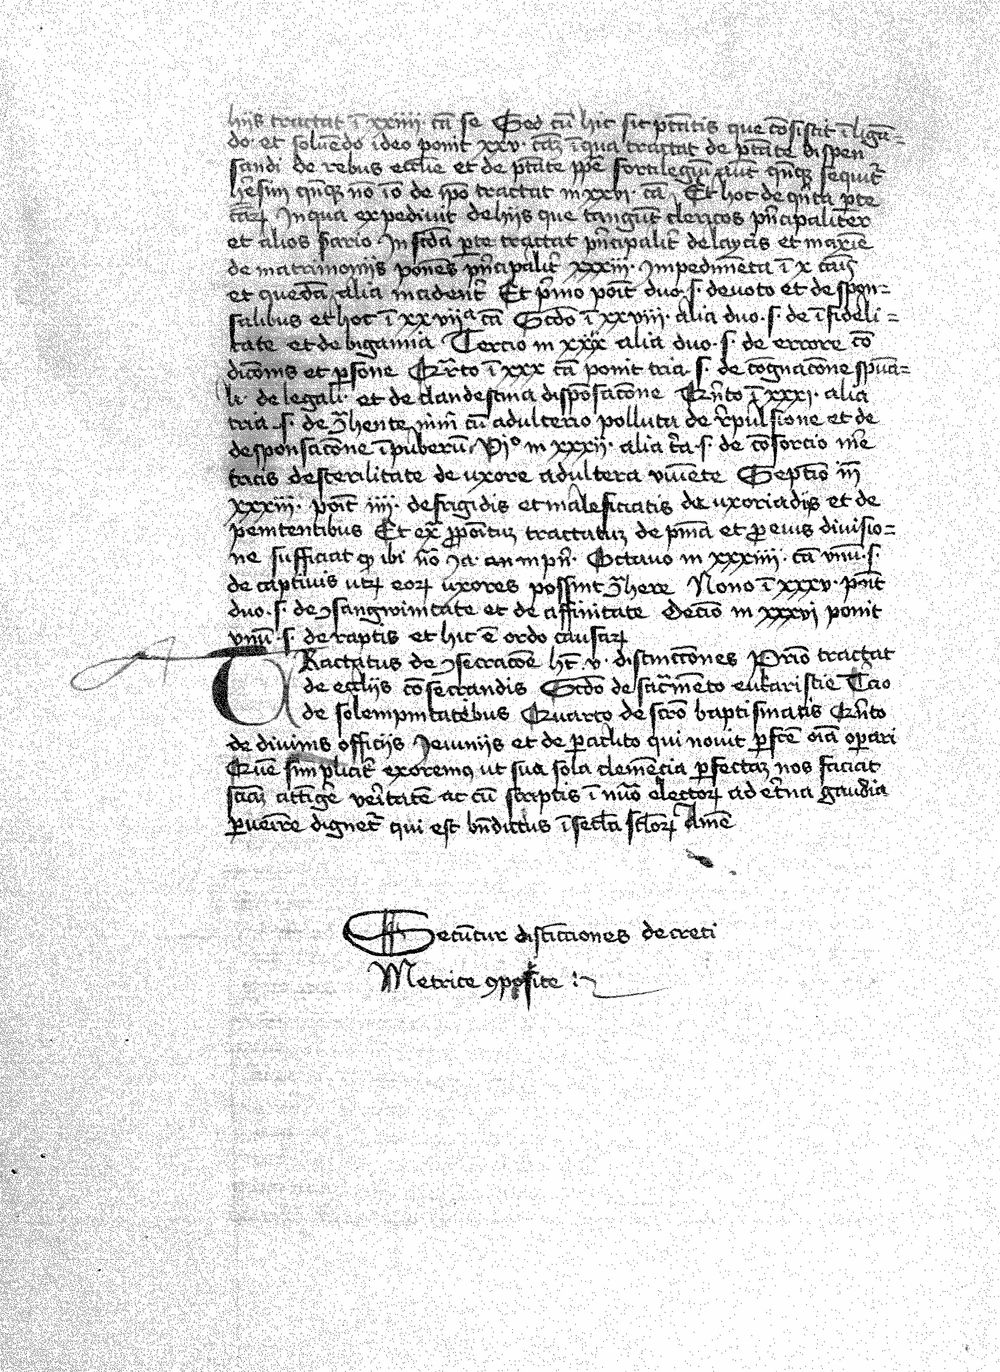 hiis tractat ī xxiiii cā se Sed cū hic sit ptātis que cōsistit ī ligā=
do et soluēdo ideo ponit xxv cāȝ ī qua tractat de ptāte dispen
sandi de rebus ecclīe et de ptāte ppe sortilegiū aūt sequit͛
hēsim no iō de ipō tractat in xxvi cā Et hoc de qnta pte
cāꝝ In qua expediuit de hiis que tangūt clericos pncipaliter
et alios scd̄ario In scda pte tractat pncipalit͛ de laycis et maxīe
de matrimoniis ponēs pncipalit͛ xxxiii Impedimēta ī x cāis
et quedā alia incidenť Et pmo poīt duo .s. de voto et de spon=
salibus et hoc ī xxviiᵃ cā Scdo ī xxviii alia duo .s. de īfideli=
tate et de bigamia Tercio in xxix alia duo .s. de errore cō
dicōnis et psone Qrto ī xxx cā ponit tria .s. de cōgnacōne spūa=
li de legali et de clandestina dispōsacōne Qnto ī xxxi alia
tria .s. de ꝯhente cū adulterio polluta de rpulsione et de
desponsacōne īpuberū VIº in xxxii alia .s. de cōsorcio me
tricis de sterilitate de uxore adultera viuēte Septīo in
xxxiii poīt iiii de frigidis et maleficiatis de uxoriadis et de
penitentibus Et tractatuȝ de pnīa et ꝓ eius diuisio=
ne sufficiat ꝙ ibi Octauo in xxxiiii cā vnū .s.
de captiuis utꝝ eoꝝ uxores possint ꝯhere Nono ī xxxv pnt
duo .s. de ꝯsangwinitate et de affinitate Decīo in xxxvi ponit
vnū .s. de raptis et hic ē ordo causaꝝ
TRactatus de ꝯsecracōe ht v distincciones Prīo tractat
de ecclīis cōsecrandis Scdo de sacrmēto eukaristie Tcio
de solempnitatibus Quarto de scrō baptismatis Qnto
de diuinis officiis Ieiuniis et de paclito qui nouit pfcē oīa opari
Quē simplicit͛ exoremꝯ ut sua sola clemēcia pfectaȝ nos faciat
suaȝ attīgē veritatē ac cū scriptis ī nūo electoꝝ ad etna gaudia
pueīre dignet͛ qui est bndictus ī secla scloꝝ Amē
Secūtur distīcciones decreti
Metrice ꝯposite :~